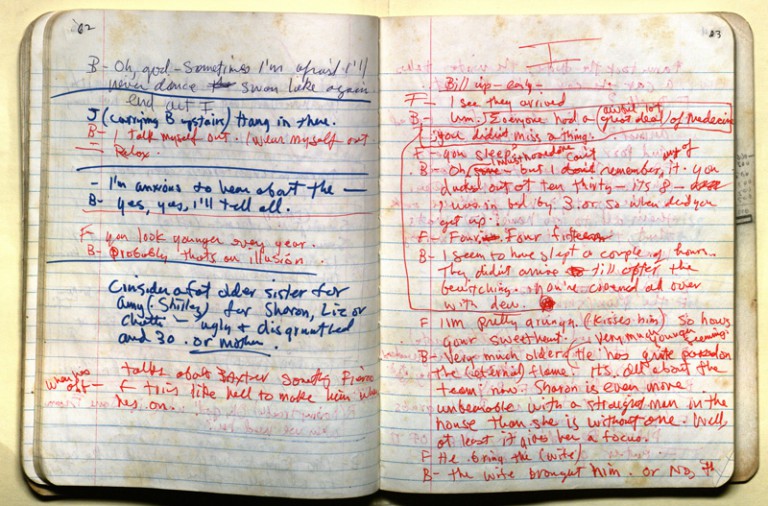 62
B- Oh, god - Sometimes I'm afraid I'll
never dance swan lake again
end act I
J (carrying B upstairs) Hang in there.
B- I talk myself out. I wear myself out
Relax.
- I'm anxious to hear about the —
B- yes, yes, I'll tell all.
F you look younger every year.
B- Probably that's an illusion.
Consider a fat older sister for
Amy (Shirley) for Sharon, Liz or
- ugly & disgruntled
and 30. or mother.
talks about Baxter
when he's out - F tries like hell to make him when
he's on.
63
I
Bill up - early -
F- I see they arrived
B- Um. Everyone had a great deal of Medecine
awful lot
you didn't miss a thing.
F- you sleep
B- Oh I must have done - but I can't remember it. you
ducked out at ten thirty - it's 8 -
I was in bed by 3. or so when did you
get up?
F- Four Four fifteen
B- I seem to have slept a couple of hours.
They didn't arrive till after the
bewitching. you're covered all over
with dew.
F I'm pretty grungy. (Kisses him) So hows
your sweetheart.
B- Very much older. He has
very much younger seeming
the (eternal) flame. its all about the
team now. Sharon is even more
unbearable with a straight man in the
house than she is without one. Well,
at least it gives her a focus.
F He bring the (wife)
B- the wife brought him. or No, it